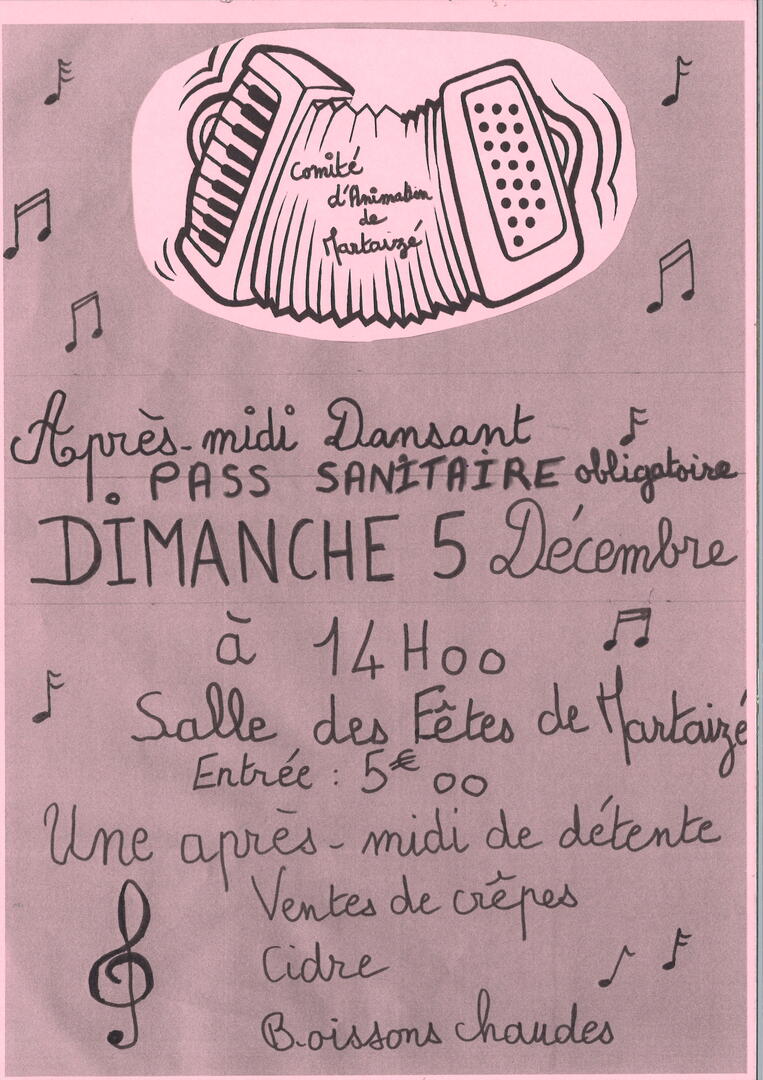 Comité
d'Animation
de
Martaizé
Après-midi Dansant
PASS SANITAIRE obligatoire
DIMANCHE 5 Décembre
à 14H00
Salle des Fêtes de Martaizé
Entrée : 5€00
Une après-midi de détente
Ventes de crêpes
Cidre
Boissons chaudes